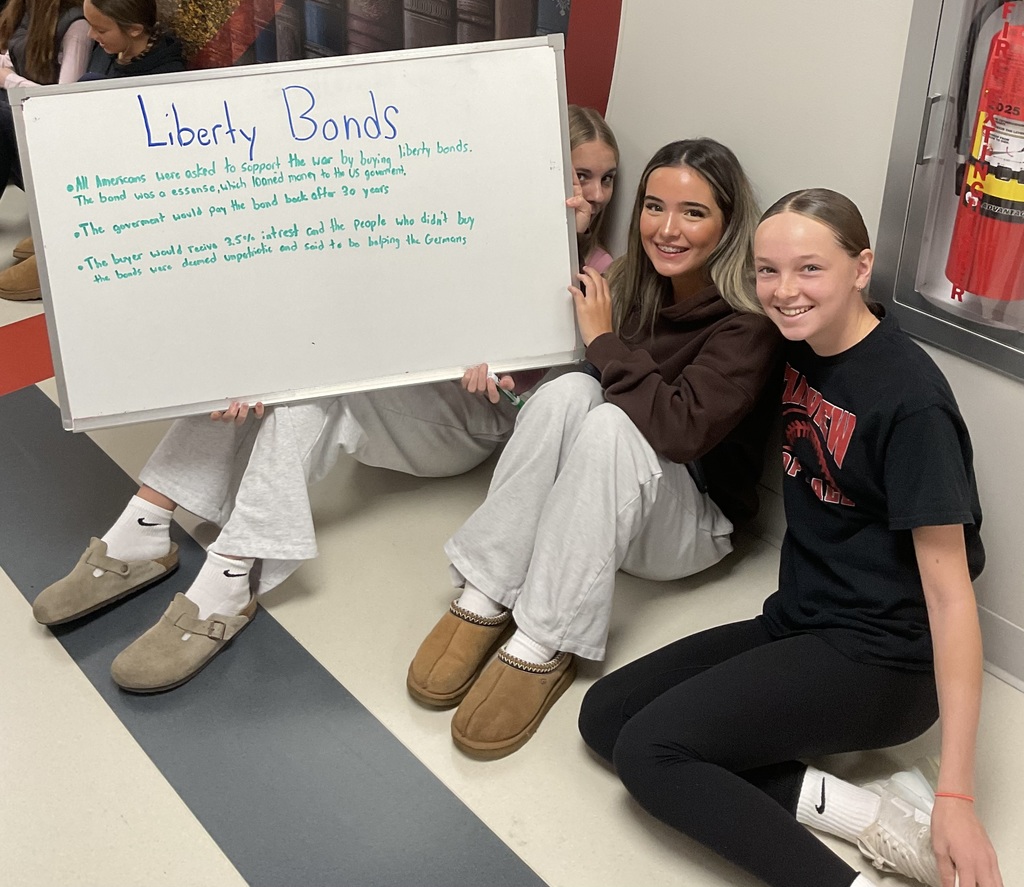 Liberty Bonds
• All Americans were asked to support the war by buying liberty bonds.
The bond was a essense, which loaned money to the US goverment.
• The goverment would pay the bond back after 30 years
• The buyer would recive 3.5% intrest and the people who didn't buy
the bonds were deemed unpatriotic and said to be helping the Germans
2025
ADVANTAGE